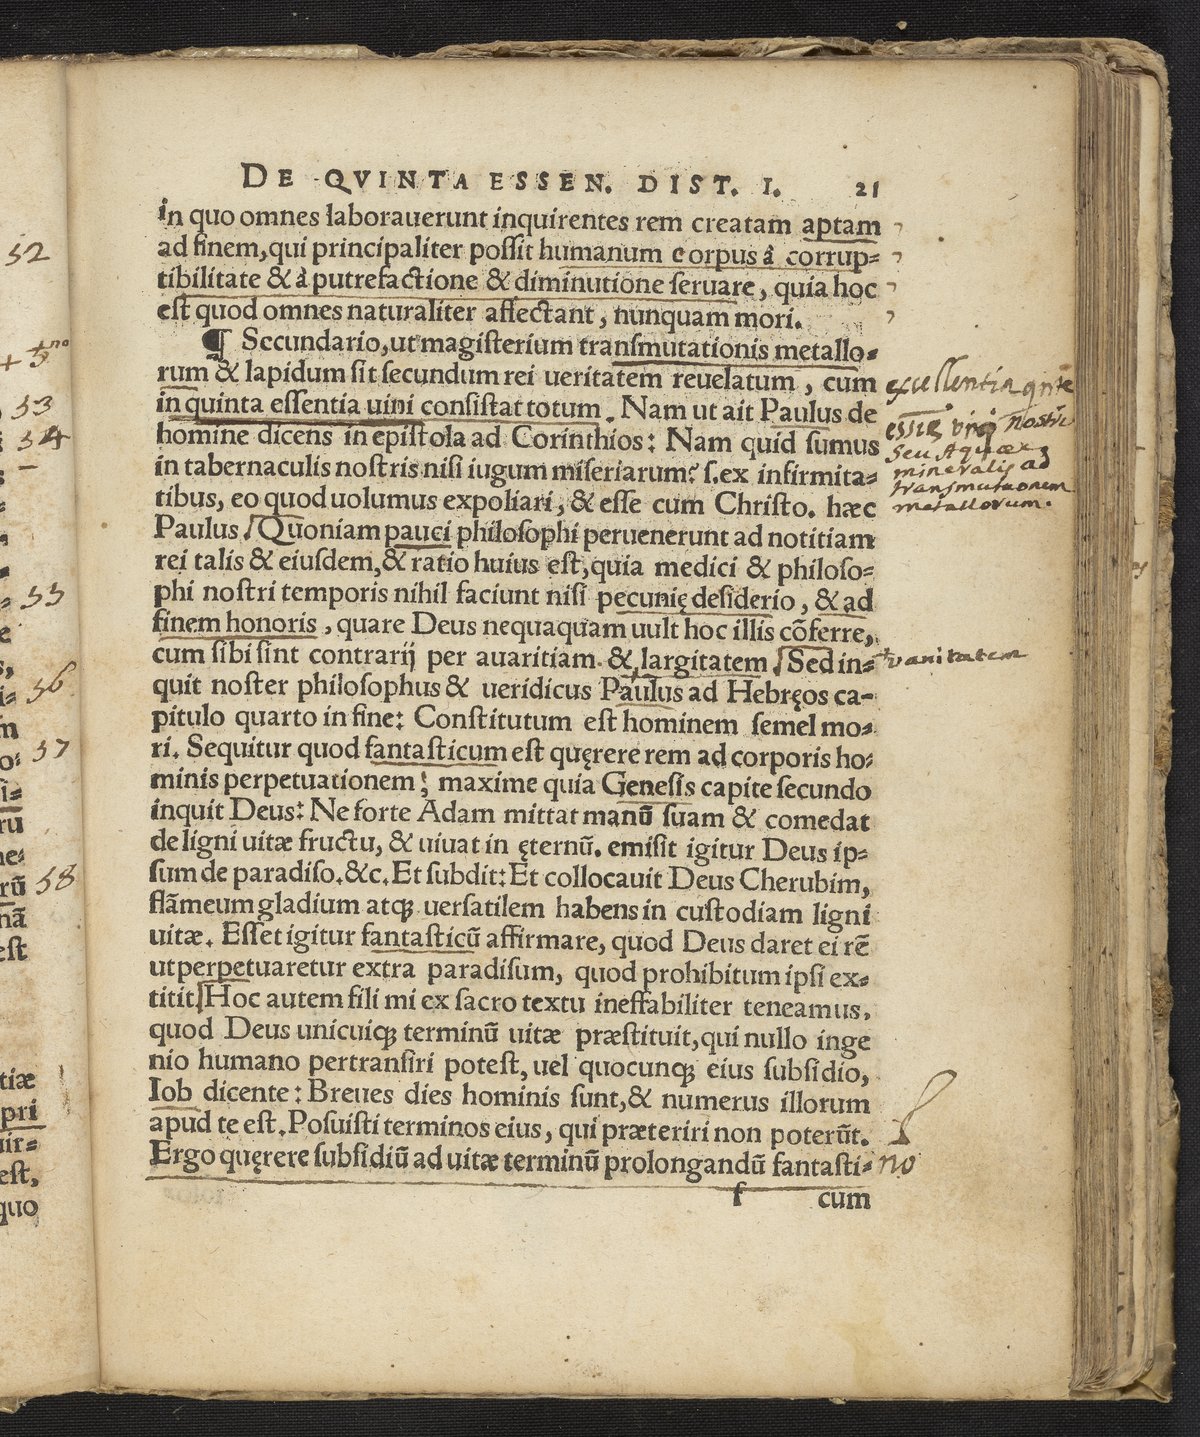 DE QVINTA ESSEN. DIST. I. 21
in quo omnes laborauerunt inquirentes rem creatam aptam
ad finem, qui principaliter poſſit humanum corpus â corrup=
tibilitate & â putrefactione & diminutione ſeruare, quia hoc
eſt quod omnes naturaliter affectant, nunquam mori.
¶ Secundario, ut magiſterium tranſmutationis metallo=
rum & lapidum ſit ſecundum rei ueritatem reuelatum, cum
in quinta eſſentia uini conſiſtat totum. Nam ut ait Paulus de
homine dicens in epiſtola ad Corinthios: Nam quid ſumus
in tabernaculis noſtris niſi iugum miſeriarum? ſ. ex infirmita=
tibus, eo quod uolumus expoliari, & eſſe cum Chriſto. hæc
Paulus. Quoniam pauci philoſophi peruenerunt ad notitiam
rei talis & eiuſdem, & ratio huius eſt, quia medici & philoſo=
phi noſtri temporis nihil faciunt niſi pecunię deſiderio, & ad
finem honoris, quare Deus nequaquam uult hoc illis cõferre,
cum ſibi ſint contrarij per auaritiam & largitatem. Sed in=
quit noſter philoſophus & ueridicus Paulus ad Hebręos ca=
pitulo quarto in fine: Conſtitutum eſt hominem ſemel mo=
ri. Sequitur quod fantaſticum eſt quęrere rem ad corporis ho=
minis perpetuationem; maxime quia Geneſis capite ſecundo
inquit Deus: Ne forte Adam mittat manũ ſuam & comedat
de ligni uitæ fructu, & uiuat in ęternũ. emiſit igitur Deus ip=
ſum de paradiſo. &c. Et ſubdit: Et collocauit Deus Cherubim,
flãmeum gladium atqꝫ uerſatilem habens in cuſtodiam ligni
uitæ. Eſſet igitur fantaſticũ affirmare, quod Deus daret ei rẽ
ut perpetuaretur extra paradiſum, quod prohibitum ipſi ex=
titit. Hoc autem fili mi ex ſacro textu ineffabiliter teneamus,
quod Deus unicuiqꝫ terminũ uitæ præſtituit, qui nullo inge
nio humano pertranſiri poteſt, uel quocunqꝫ eius ſubſidio,
Iob dicente: Breues dies hominis ſunt, & numerus illorum
apud te eſt. Poſuiſti terminos eius, qui præteriri non poterũt.
Ergo quęrere ſubſidiũ ad uitæ terminũ prolongandũ fantaſti=
f cum
excellentia qnte
essiæ vini nostri
seu Aquæ
mineralis ad
transmutaonem
metallorum.
+vanitatem
no
52
53
54
55
56
57
58